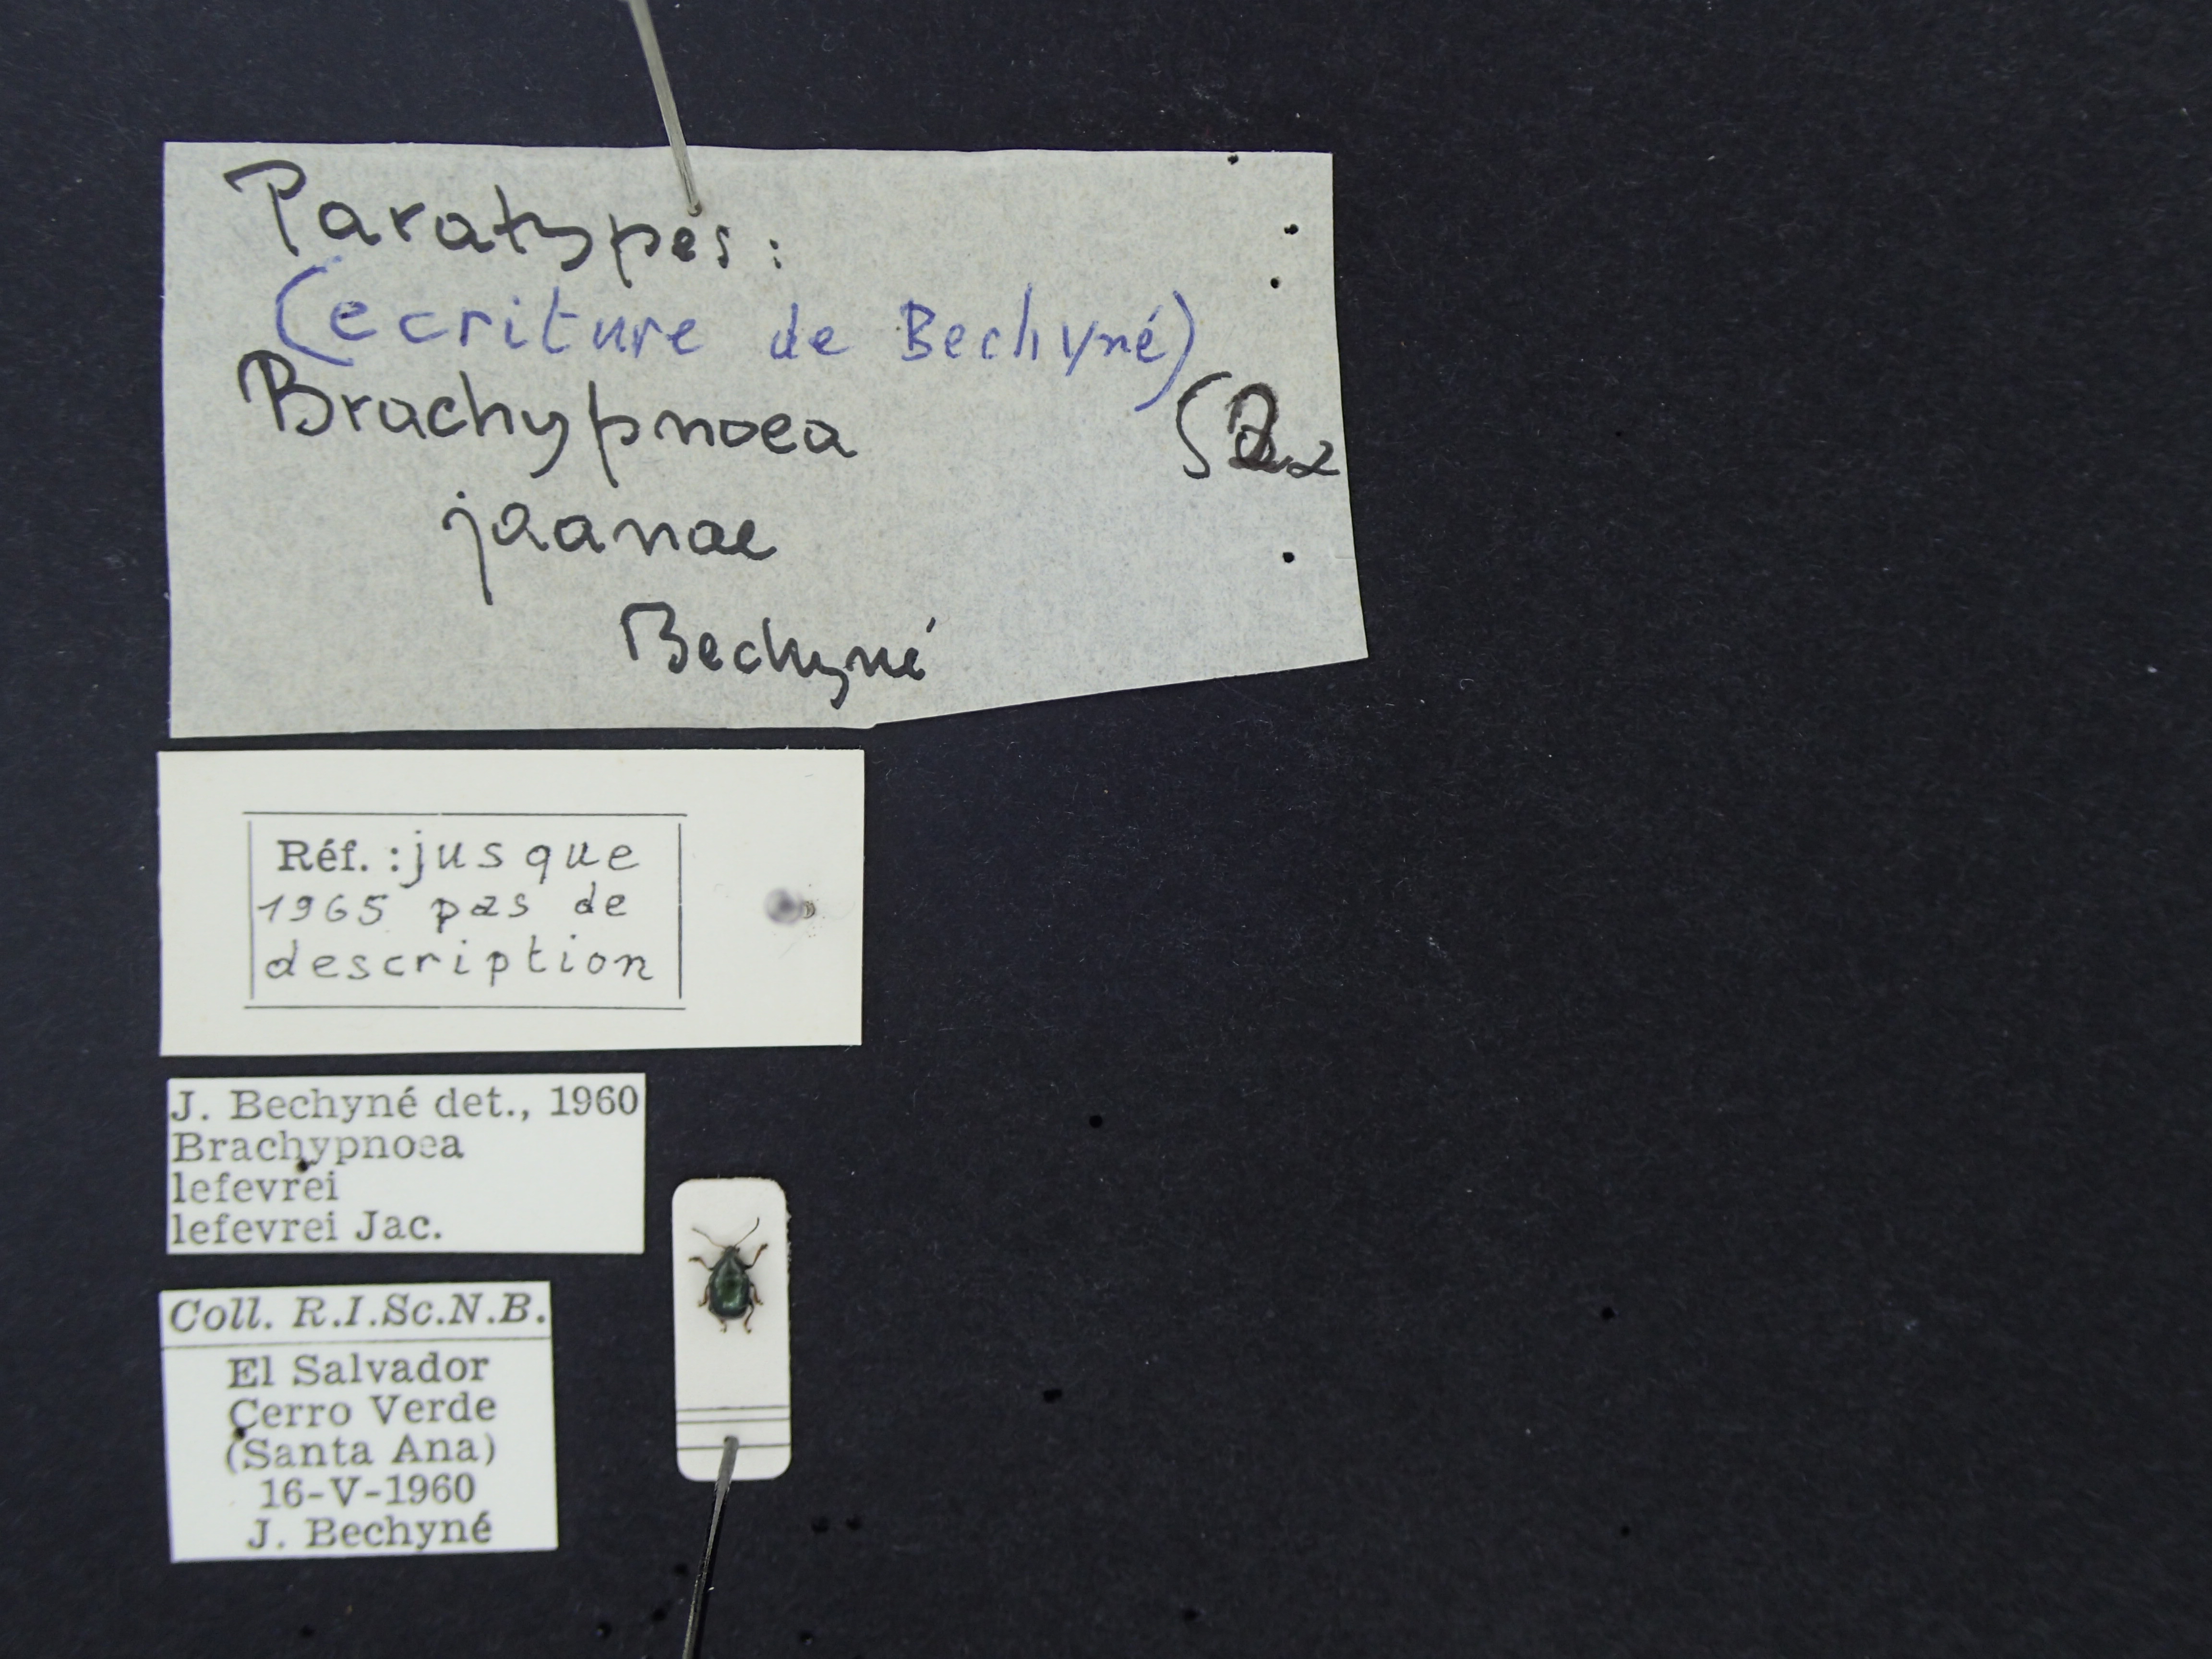 Paratypes:
(ecriture de Bechyné)
Brachypnoea
jaanae
Bechyné
Réf. : jusque
1965 pas de
description
J. Bechyné det., 1960
Brachypnoea
lefevrei
lefevrei Jac.
Coll. R.I.Sc.N.B.
El Salvador
Cerro Verde
(Santa Ana)
16-V-1960
J. Bechyné